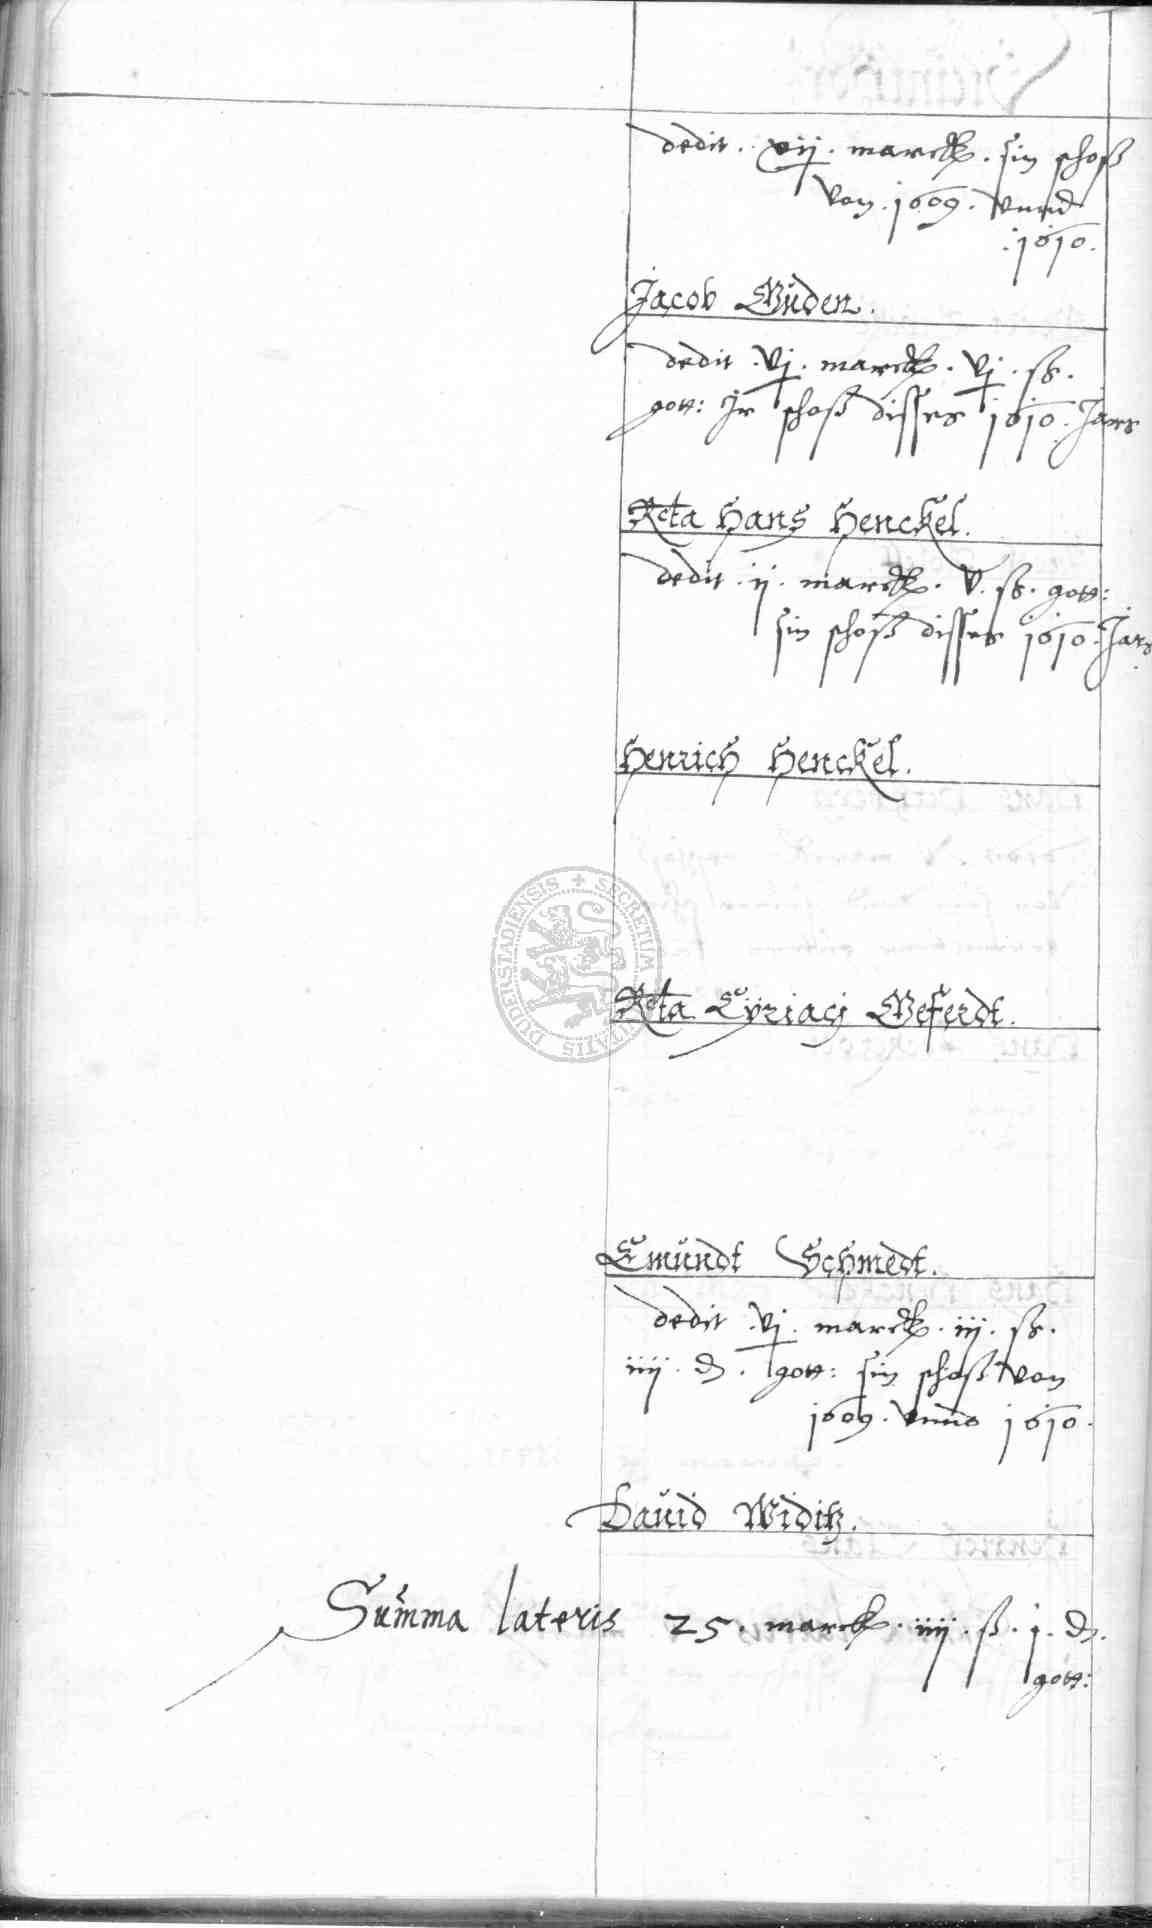 dedit . vij . marck . sin schoß
von . 1609 . vnnd
. 1610 .
Jacob Wüden .
dedit . vj . marck . vj . ss .
gott: Jr schoß disses 1610 . Jars
Rcta Hans Henckel .
dedit . ij . marck . v . ss . gott:
sin schoß disses 1610 . Jars
Henrich Henckel .
DUDERSTADIENSIS + SECRETUM CIVITATIS
Rcta Cyriacj Weferdt .
Emündt Schmedt .
dedit . vj . marck . iij . ss .
iiij . d . gott: sin schoß von
1609 . vnnd 1610 .
Dauid Widitz .
Summa lateris 25 . marck . iiij . ß . j . d .
gott: